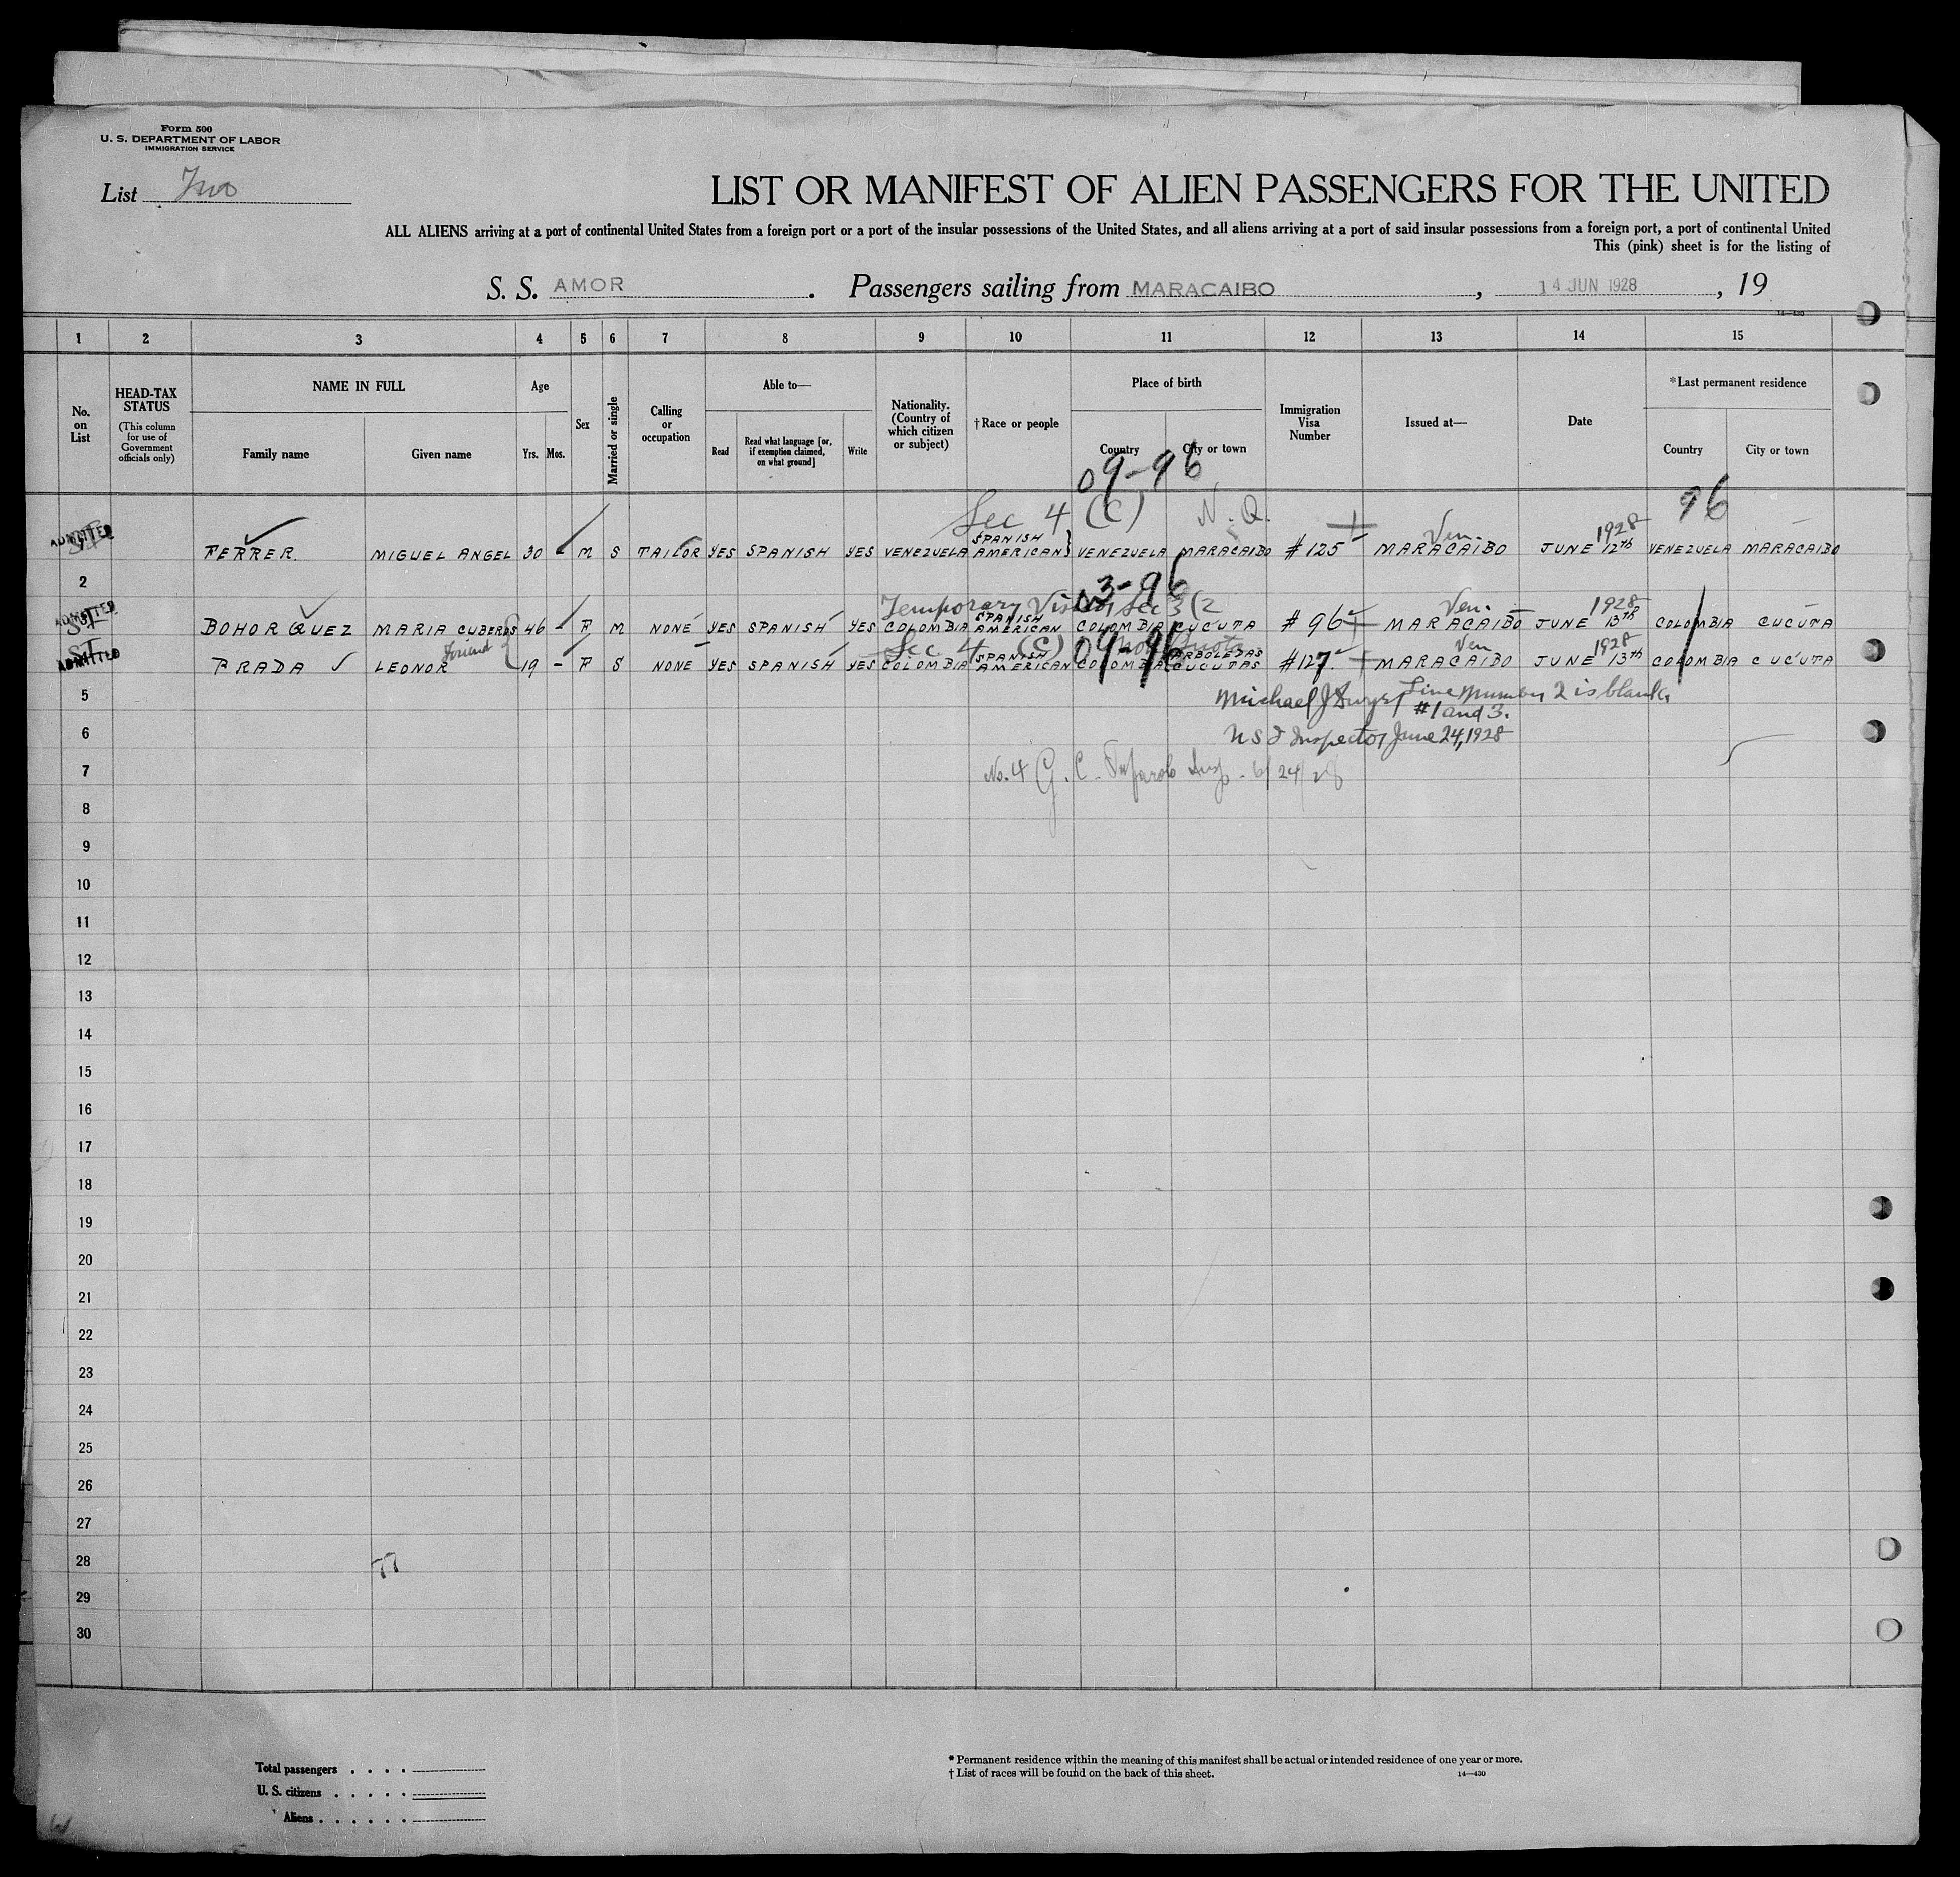 Form 500
U. S. DEPARTMENT OF LABOR
IMMIGRATION SERVICE
List Two
LIST OR MANIFEST OF ALIEN PASSENGERS FOR THE UNITED
ALL ALIENS arriving at a port of continental United States from a foreign port or a port of the insular possessions of the United States, and all aliens arriving at a port of said insular possessions from a foreign port, a port of continental United
This (pink) sheet is for the listing of
S. S. AMOR . Passengers sailing from MARACAIBO , 14 JUN 1928 , 19
14—430
1 2 3 4 5 6 7 8 9 10 11 12 13 14 15
No. on List
HEAD-TAX STATUS
(This column for use of Government officials only)
NAME IN FULL
Family name
Given name
Age
Yrs. Mos.
Sex
Married or single
Calling or occupation
Able to—
Read
Read what language [or, if exemption claimed, on what ground]
Write
Nationality. (Country of which citizen or subject)
†Race or people
Place of birth
Country
City or town
Immigration Visa Number
Issued at—
Date
*Last permanent residence
Country
City or town
09-96
Sec 4 (C) N. Q. 96
ADMITTED FERRER MIGUEL ANGEL 30 - M S TAILOR YES SPANISH YES VENEZUELA SPANISH AMERICAN VENEZUELA MARACAIBO #125 MARACAIBO Ven. JUNE 12th 1928 VENEZUELA MARACAIBO
2
03-96
Temporary Visitor Sec 3 (2
ADMITTED BOHORQUEZ MARIA CUBEROS 46 - F M NONE YES SPANISH YES COLOMBIA SPANISH AMERICAN COLOMBIA CUCUTA #96 MARACAIBO Ven. JUNE 13th 1928 COLOMBIA CUCUTA
Sec 4 (C) Non Quota
09-96
ADMITTED PRADA LEONOR friend 19 - F S NONE YES SPANISH YES COLOMBIA SPANISH AMERICAN COLOMBIA ARBOLEDAS CUCUTAS #127 MARACAIBO Ven JUNE 13th 1928 COLOMBIA CUCUTA
5
Michael J Dwyer Line Number 2 is blank,
#1 and 3.
6
U S I Inspector June 24, 1928
7
No. 4 G. C. Insp. 6/24/28
8
9
10
11
12
13
14
15
16
17
18
19
20
21
22
23
24
25
26
27
28
77
29
30
Total passengers . . . .
U. S. citizens . . . . .
Aliens . . . . . .
* Permanent residence within the meaning of this manifest shall be actual or intended residence of one year or more.
† List of races will be found on the back of this sheet.
14—430